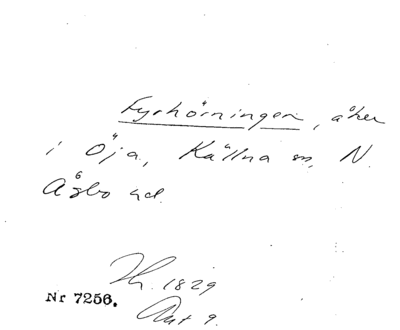 Fyrhörningen, åker
i Öja, Källna sn, N.
Åsbo hd.
Nr 7256.
1829
Akt 9.